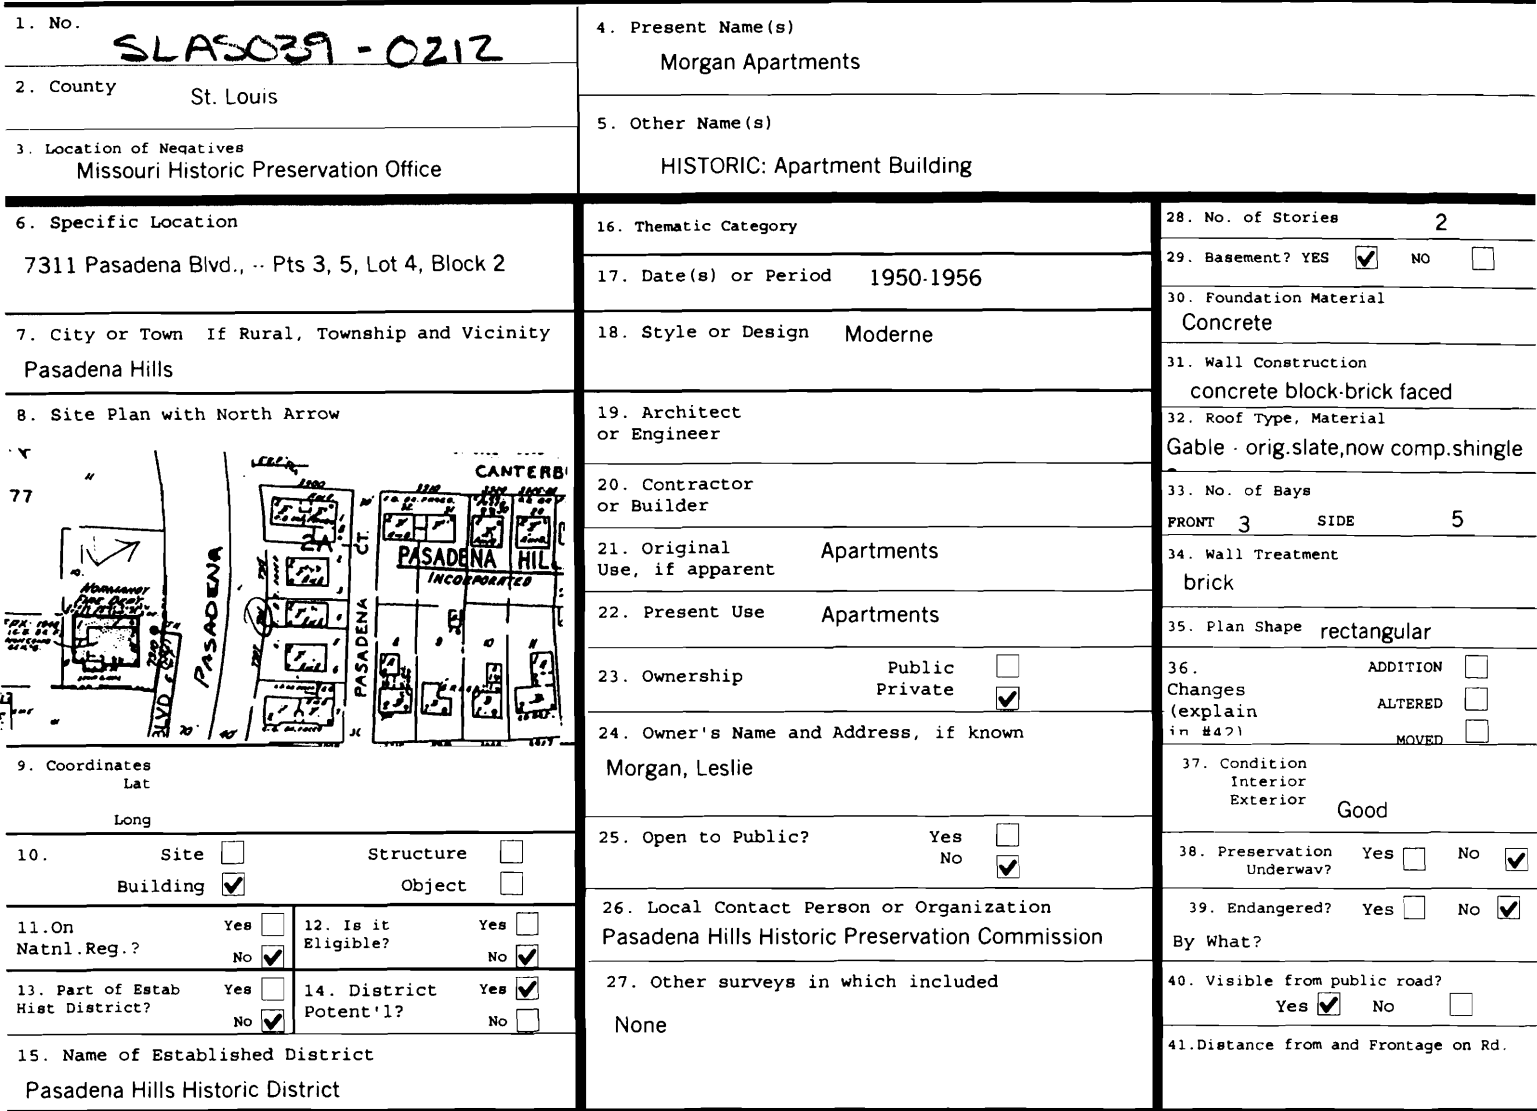 1. No.
SLAS039 - 0212
2. County
St. Louis
3. Location of Negatives
Missouri Historic Preservation Office
4. Present Name(s)
Morgan Apartments
5. Other Name(s)
HISTORIC: Apartment Building
6. Specific Location
7311 Pasadena Blvd., -- Pts 3, 5, Lot 4, Block 2
7. City or Town If Rural, Township and Vicinity
Pasadena Hills
8. Site Plan with North Arrow
77
CANTERB
2A
CT.
PASADENA HILL
INCORPORATED
PASADENA
PASADENA
NORMANDY
FIRE DEPT
BLVD
9. Coordinates
Lat
Long
10. Site Structure
Building ✔ Object
11.On Natnl.Reg.? Yes No ✔
12. Is it Eligible? Yes No ✔
13. Part of Estab Hist District? Yes No ✔
14. District Potent'l? Yes ✔ No
15. Name of Established District
Pasadena Hills Historic District
16. Thematic Category
17. Date(s) or Period 1950-1956
18. Style or Design Moderne
19. Architect
or Engineer
20. Contractor
or Builder
21. Original Apartments
Use, if apparent
22. Present Use Apartments
23. Ownership Public
Private ✔
24. Owner's Name and Address, if known
Morgan, Leslie
25. Open to Public? Yes
No ✔
26. Local Contact Person or Organization
Pasadena Hills Historic Preservation Commission
27. Other surveys in which included
None
28. No. of Stories 2
29. Basement? YES ✔ NO
30. Foundation Material
Concrete
31. Wall Construction
concrete block-brick faced
32. Roof Type, Material
Gable - orig.slate,now comp.shingle
33. No. of Bays
FRONT 3 SIDE 5
34. Wall Treatment
brick
35. Plan Shape rectangular
36. ADDITION
Changes
(explain ALTERED
in #42) MOVED
37. Condition
Interior
Exterior Good
38. Preservation Yes No ✔
Underway?
39. Endangered? Yes No ✔
By What?
40. Visible from public road?
Yes ✔ No
41.Distance from and Frontage on Rd.